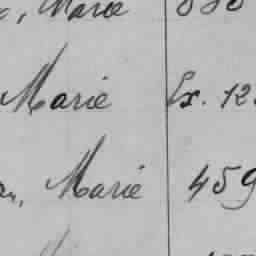 Marie
Marie Ex. 12
Marie 459